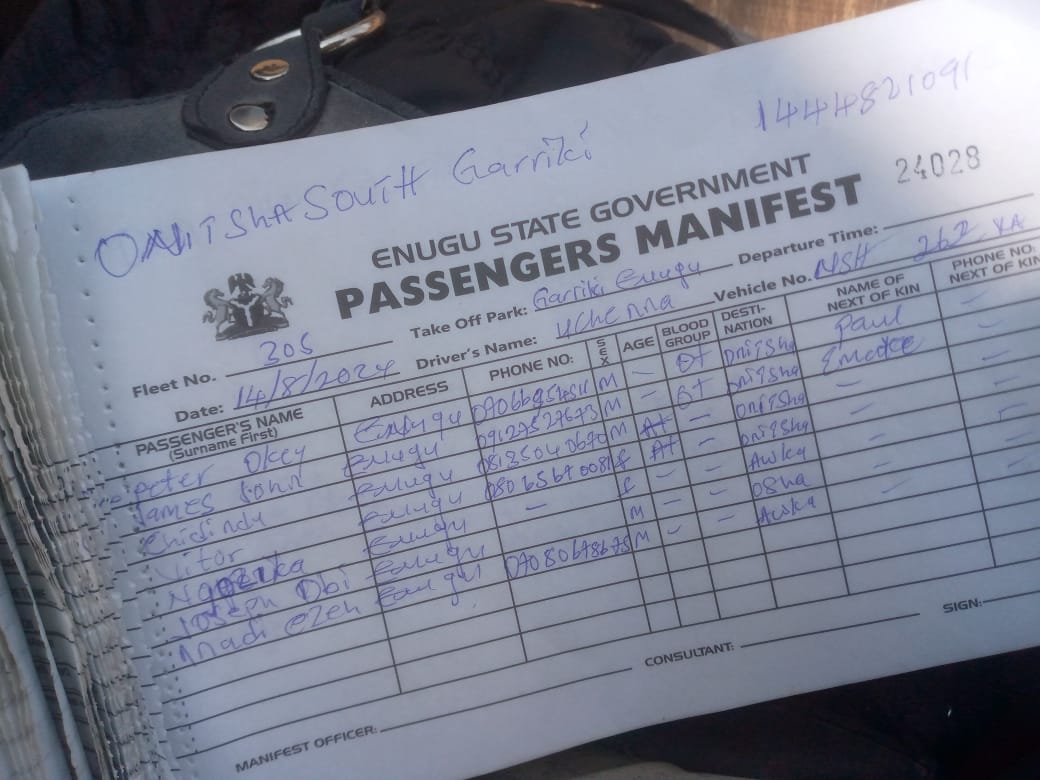 1444821091
ONITSHA SOUTH Garriki
ENUGU STATE GOVERNMENT
PASSENGERS MANIFEST
24028
Fleet No. 305 Take Off Park: Garriki Enugu Departure Time:
Date: 14/8/2024 Driver's Name: Uchenna Vehicle No. NSH 262 XA
PASSENGER'S NAME (Surname First) ADDRESS PHONE NO: SEX AGE BLOOD GROUP DESTI-NATION NAME OF NEXT OF KIN PHONE NO: NEXT OF KIN
peter Okey Enugu M – O+ Onitsha Paul –
James John Enugu 09127527673 M – O+ Onitsha –
Chidindu Enugu M A+ – Onitsha – –
Vitor Enugu f A+ – Onitsha – –
Ngozika Enugu – f – – Awka – –
Joseph Obi Enugu M – – – –
Nnadi ezeh Enugu M – – Awka –
MANIFEST OFFICER: CONSULTANT: SIGN: